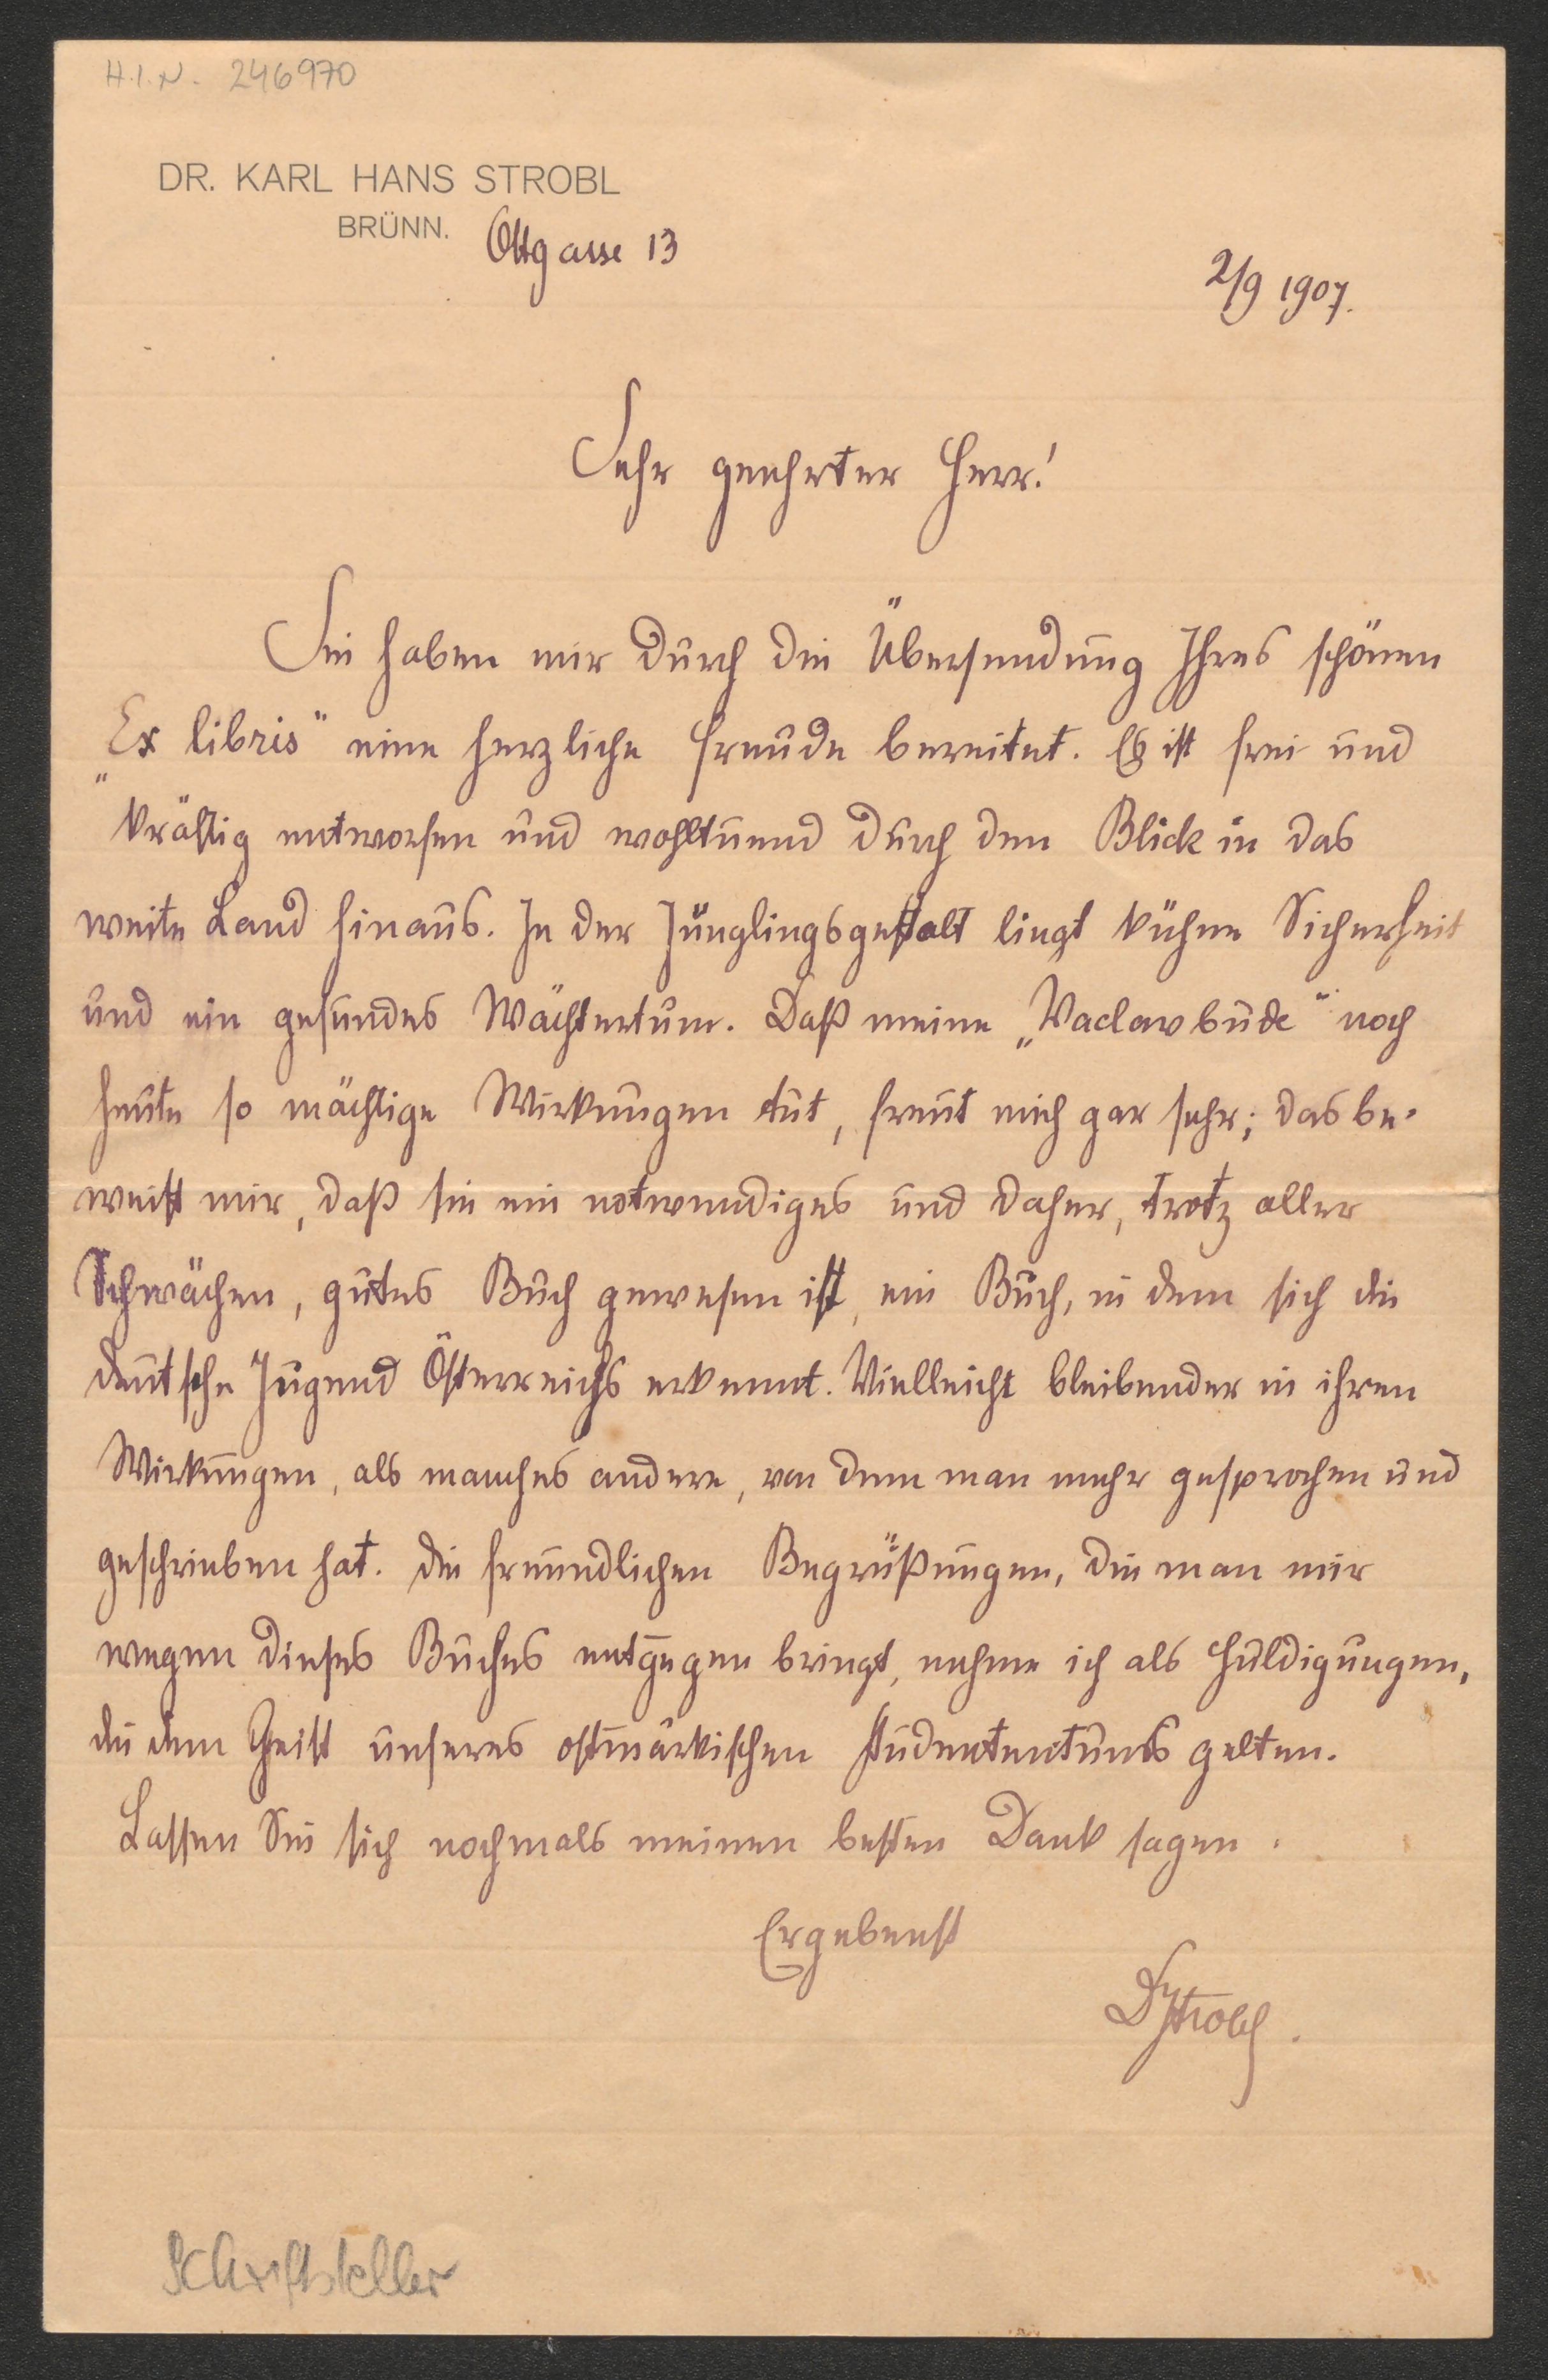 H.I.N. 246970
DR. KARL HANS STROBL
BRÜNN. Ottgasse 13
2/9 1907.
Sehr geehrter Herr!
Sie haben mir durch die Übersendung Ihres schönen
„Ex libris“ eine herzliche Freude bereitet. Es ist frei und
kräftig entworfen und wohltuend durch den Blick in das
weite Land hinaus. In der Jünglingsgestalt liegt kühne Sicherheit
und ein gesundes Wächtertum. Daß meine „Vaclavbude“ noch
heute so mächtige Wirkungen tut, freut mich gar sehr; das be-
weist mir, daß sie ein notwendiges und daher, trotz aller
Schwächen, gutes Buch gewesen ist, ein Buch, in dem sich die
deutsche Jugend Österreichs erkennt. Vielleicht bleibender in ihren
Wirkungen, als manches andere, von dem man mehr gesprochen und
geschrieben hat. Die freundlichen Begrüßungen, die man mir
wegen dieses Buches entgegen bringt, nehme ich als Huldigungen,
die dem Geist unseres ostmärkischen Studententums gelten.
Lassen Sie sich nochmals meinen besten Dank sagen.
Ergebenst
DrStrobl.
Schriftsteller